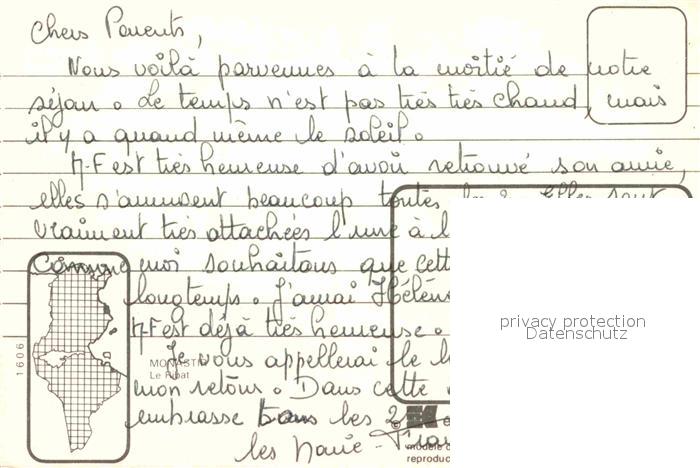 Chers Parents,
Nous voilà parvenues à la moitié de notre
séjour. Le temps n'est pas très très chaud, mais
il y a quand même le soleil.
M-F est très heureuse d'avoir retrouvé son amie,
elles s'amusent beaucoup toutes les 2. Elles sont
vraiment très attachées l'une à l
Comme moi souhaitons que cett
longtemps. J'aurai
M-F est déjà très heureuse.
Je vous appellerai le
MONASTIR
Le Ribat
mon retour. Dans cette
embrasse les 2
les Marie-Fran
1606
modèle
reproduc
privacy protection
Datenschutz